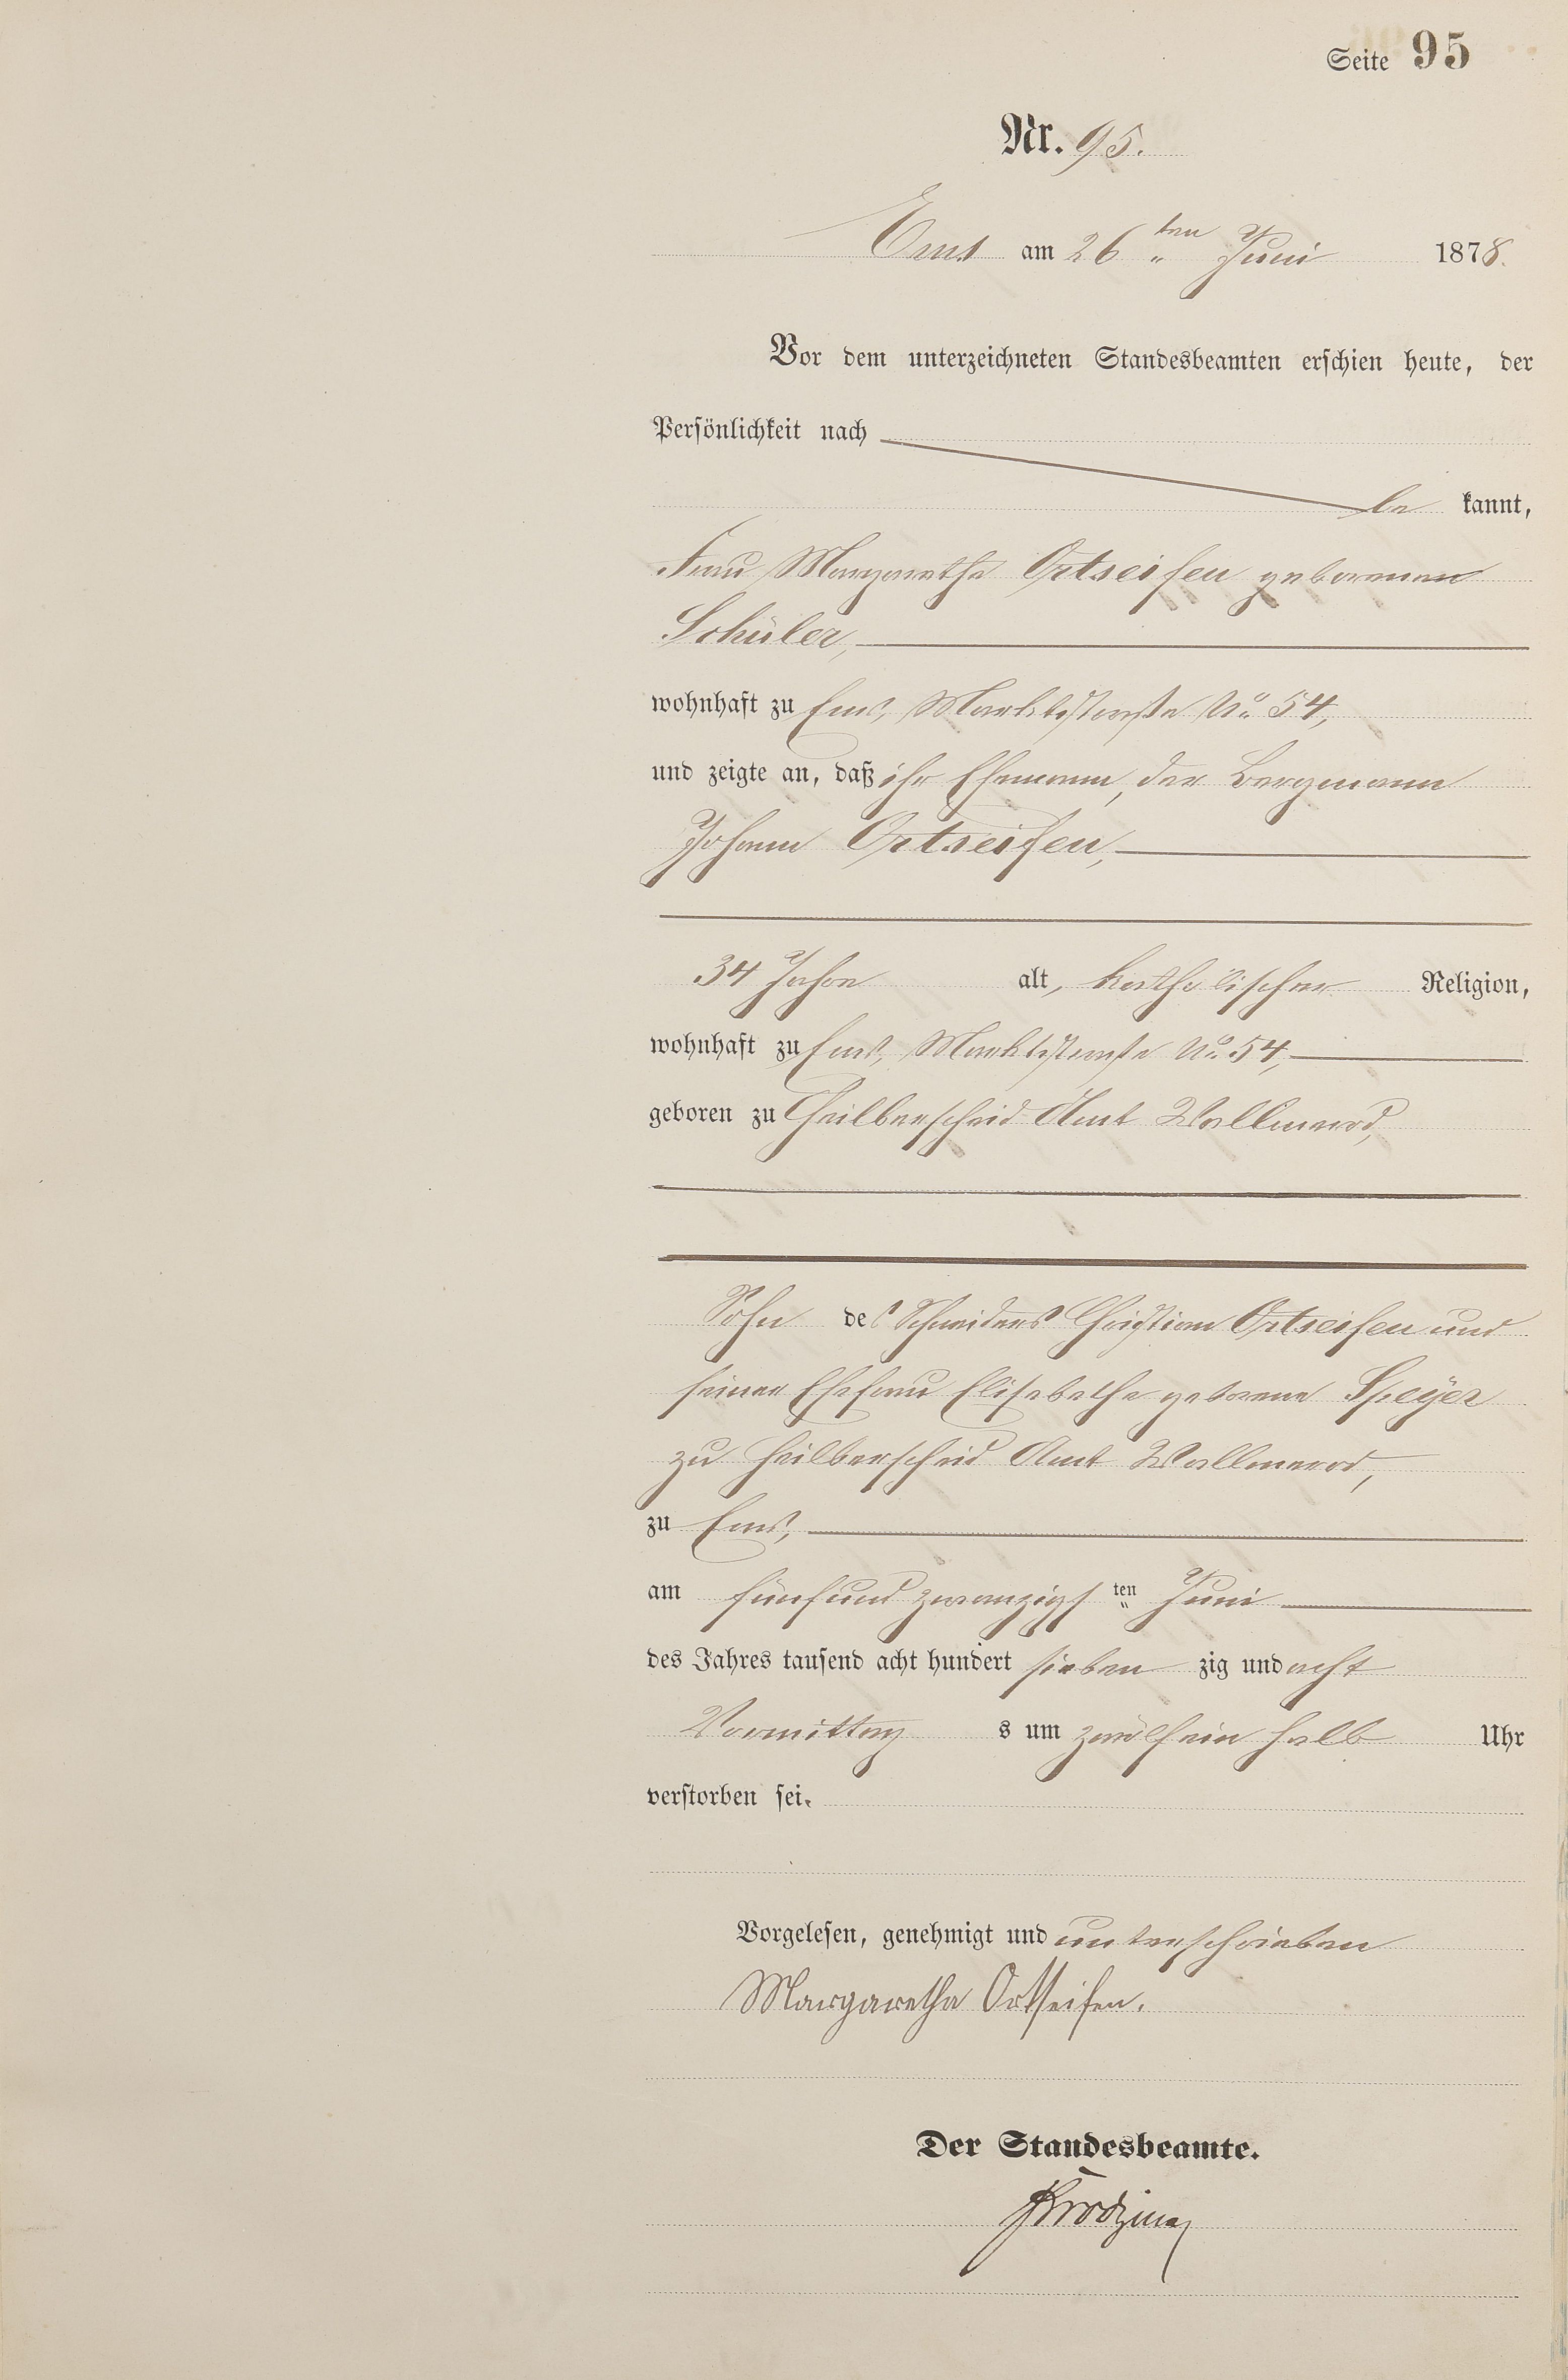 Seite 95
Nr. 95.
Ems am 26ten Juni 1878.
Vor dem unterzeichneten Standesbeamten erschien heute, der
Persönlichkeit nach
be kannt,
Frau Margarethe Ortseifen geborenen
Schüler,
wohnhaft zu Ems, Marktstraße No. 54,
und zeigte an, daß ihr Ehemann, der Bergmann
Johann Ortseifen,
34 Jahre alt, katholischer Religion,
wohnhaft zu Ems, Marktstraße No. 54,
geboren zu Heilberscheid Amt Wallmerod,
Sohn des Schneiders Christian Ortseifen und
seiner Ehefrau Elisabetha geborene Speÿer
zu Heilberscheid Amt Wallmerod,
zu Ems,
am fünfundzwanzigsten Juni
des Jahres tausend acht hundert sieben zig und acht
Vormittag s um zwölfein halb Uhr
verstorben sei.
Vorgelesen, genehmigt und unterschrieben
Margaretha Ortseifen.
Der Standesbeamte.